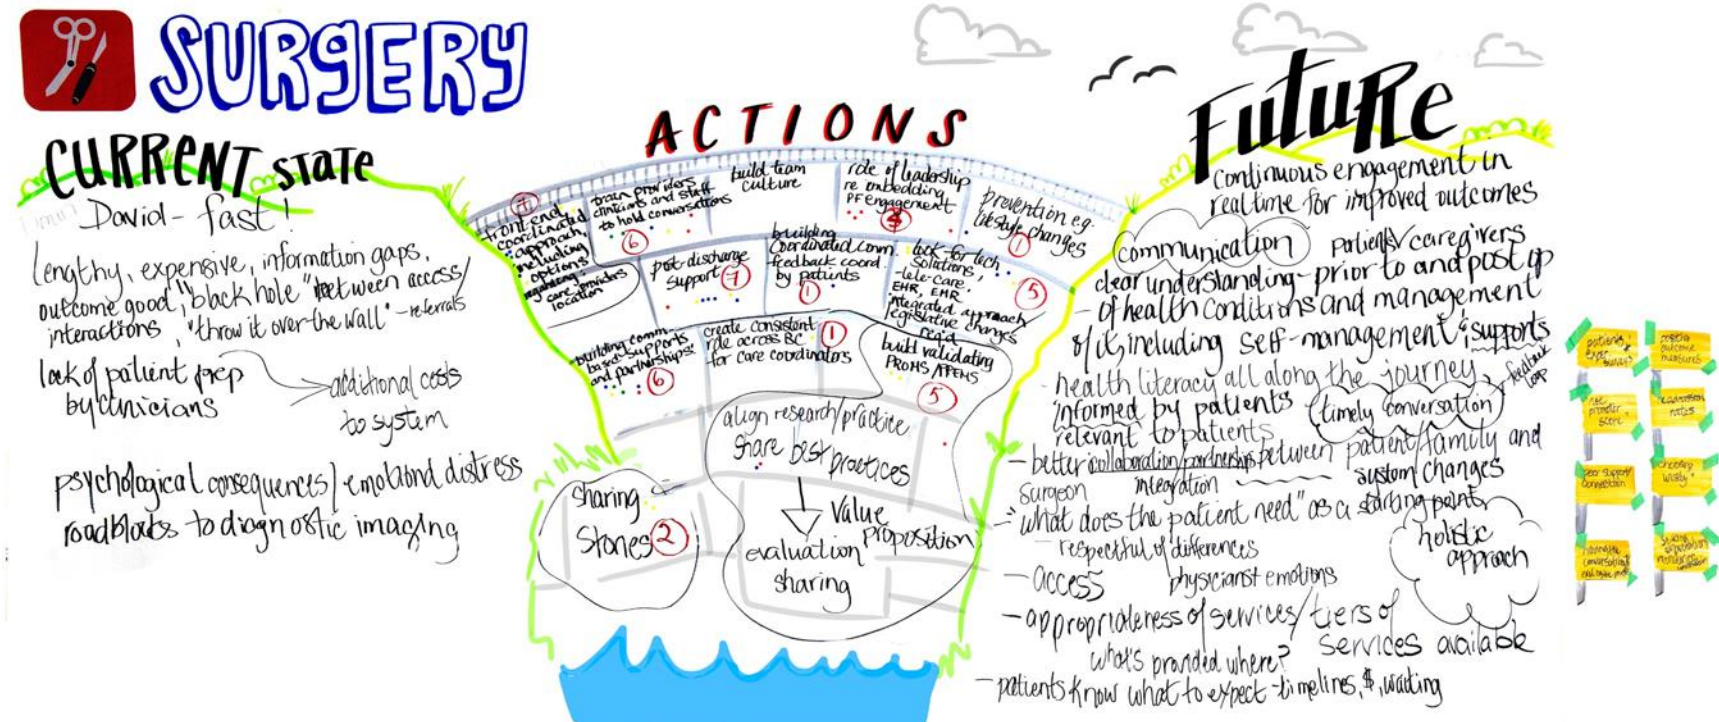 SURGERY
CURRENT state
David - fast!
Lengthy, expensive, information gaps,
outcome good, "black hole" between access/
interactions, "throw it over the wall" - referrals
lack of patient prep
by clinicians
additional costs
to system
psychological consequences/ emotional distress
roadblocks to diagnostic imaging
ACTIONS
7
front-end
coordinated
approach,
including
options
regarding:
care providers
location
train providers
clinicians and staff
to hold conversations
6
build team
culture
role of leadership
re embedding
PF engagement
prevention e.g.
lifestyle changes
1
post-discharge
support - 7
building
coordinated comm.
feedback coord.
by patients
1
look-for tech
solutions,
-tele-care,
EHR, EMR
integrated approach
legislative changes
req'd
5
building comm-
based supports
and partnerships.
6
create consistent
role across BC
for care coordinators
1
build validating
PROMS/PREMS
5
align research/practice
share best practices
Value
proposition
evaluation
sharing
sharing
Stories 2
Future
continuous engagement in
real time for improved outcomes
communication patients/caregivers
clear understanding - prior to and post op
- of health conditions and management
of it, including self-management & supports
- health literacy all along the journey
feedback
loop
informed by patients
timely conversation
relevant to patients
- better collaboration/partnerships between patient/family and
surgeon integration system changes
- "what does the patient need" as a starting point
- respectful of differences
holistic
approach
- access physicianst emotions
- appropriateness of services/tiers of
services available
what's provided where?
- patients know what to expect - timelines, $, waiting
patients
surveys
outcome
measures
score
readmission
rates
peer support
connection
choosing
wisely